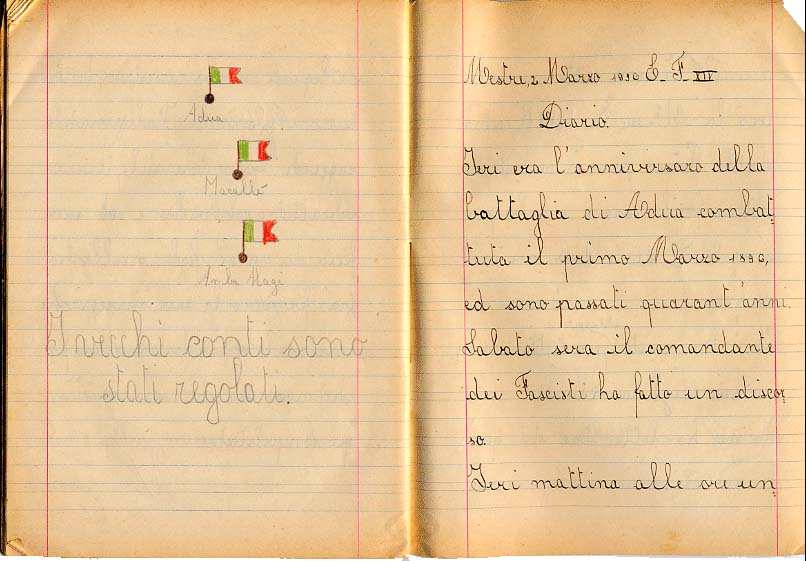 Adua
Macallè
Amba Alagi
I vecchi conti sono
stati regolati.
Mestre, 2 Marzo 1896 E. F. XIV
Diario.
Ieri era l'anniversaro della
battaglia di Adua combat-
tuta il primo Marzo 1896,
ed sono passati quarant'anni.
Sabato sera il comandante
dei Fascisti ha fatto un discor-
so.
Ieri mattina alle ore un-